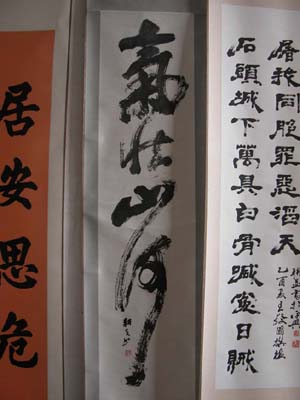 屠殺同胞罪惡滔天
石頭城下萬具白骨喊冤日賊
乙酉夏
氣壯山河
居安思危